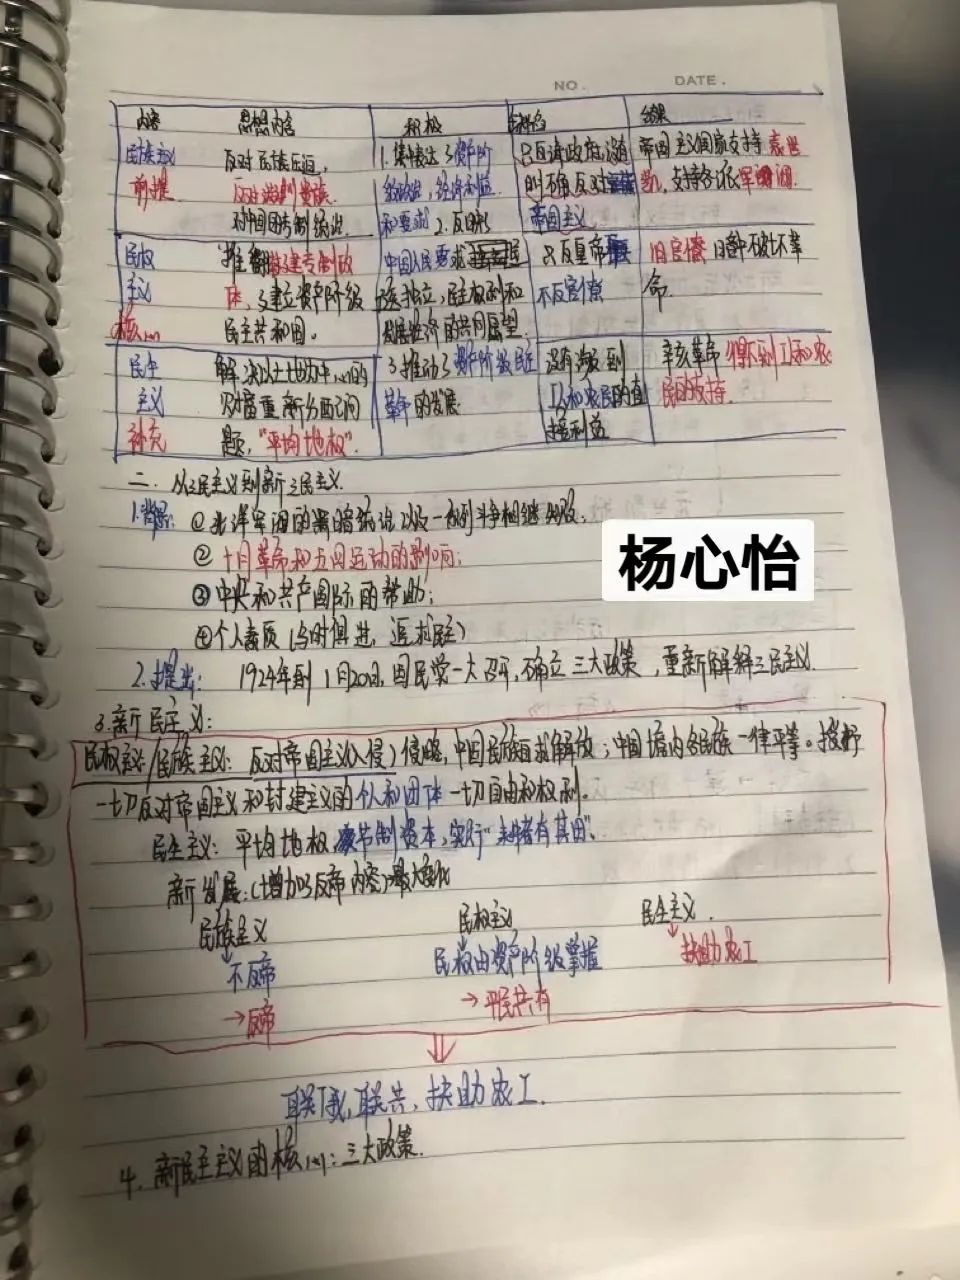 NO. DATE.
内容 思想内容 积极 局限性 结果
民族主义 反对民族压迫, 1.集中表达了资产阶 只反满政府,没有 帝国主义国家支持袁世
前提 反对满制贵族. 级政治,经济利益 明确反对 凯,支持各派军阀
对中国专制统治 和要求 2.反映 帝国主义
民权 推翻封建专制政 中国人民要求 只反皇帝 旧官僚旧
主义 体,建立资产阶级 独立,民主权利和 不反官僚 命.
核心 民主共和国。 发展经济的共同愿望.
民生 解决以土地为中心的 3.推动了资产阶级民主 没有涉及到 辛亥革命得不到工和农
主义 财富重新分配问 革命的发展. 工人和农民的直 民的支持.
补充 题,“平均地权”. 接利益
二. 从三民主义到新三民主义.
1.背景: ①北洋军阀的黑暗统治以及一系列斗争相继失败;
②十月革命和五四运动的影响;
③中央和共产国际的帮助;
④个人素质(与时俱进,追求民主)
2.提出: 1924年到1月20日,国民党一大召开,确立三大政策,重新解释三民主义.
3.新民主义:
民权主义/民族主义: 反对帝国主义入侵)侵略,中国民族自求解放;中国境内各民族一律平等。
一切反对帝国主义和封建主义的个人和团体一切自由和权利.
民生主义: 平均地权,节制资本,实行“耕者有其田”.
新发展:(增加了反帝内容)最大变化
民族主义 民权主义 民生主义.
↓不反帝 民权由资产阶级掌握 ↓扶助农工
→反帝 →平民共有
联俄,联共,扶助农工.
4.新民主主义的核心:三大政策.
杨心怡